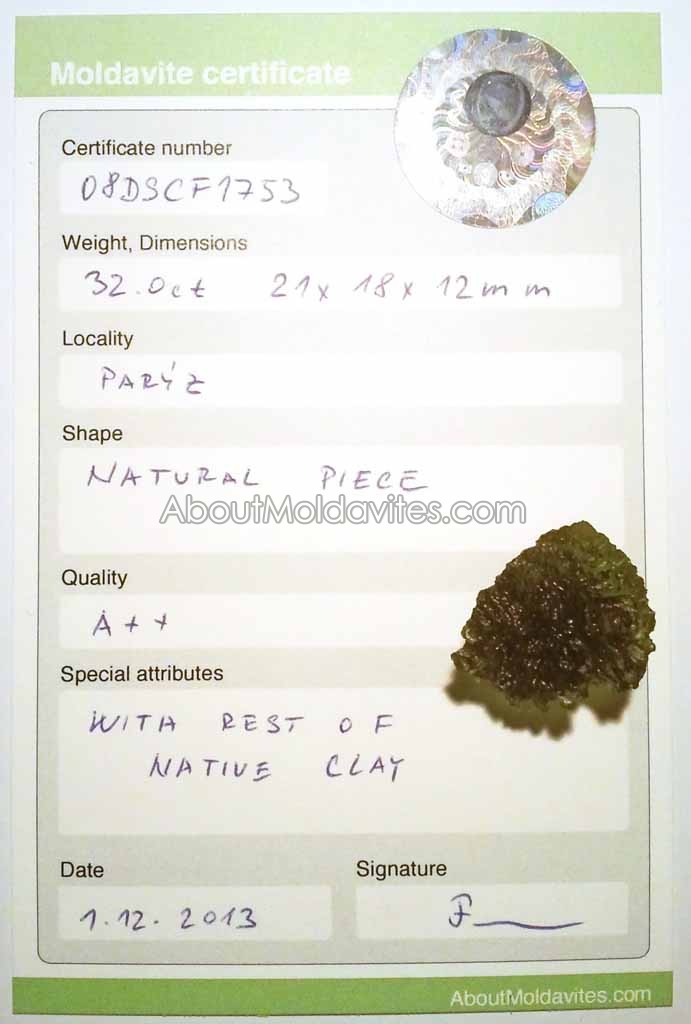 Moldavite certificate
Certificate number
08DSCF1753
Weight, Dimensions
32.0ct 21x 18x 12mm
Locality
PARÝZ
Shape
NATURAL PIECE
AboutMoldavites.com
Quality
A++
Special attributes
WITH REST OF
NATIVE CLAY
Date
Signature
1.12. 2013
AboutMoldavites.com